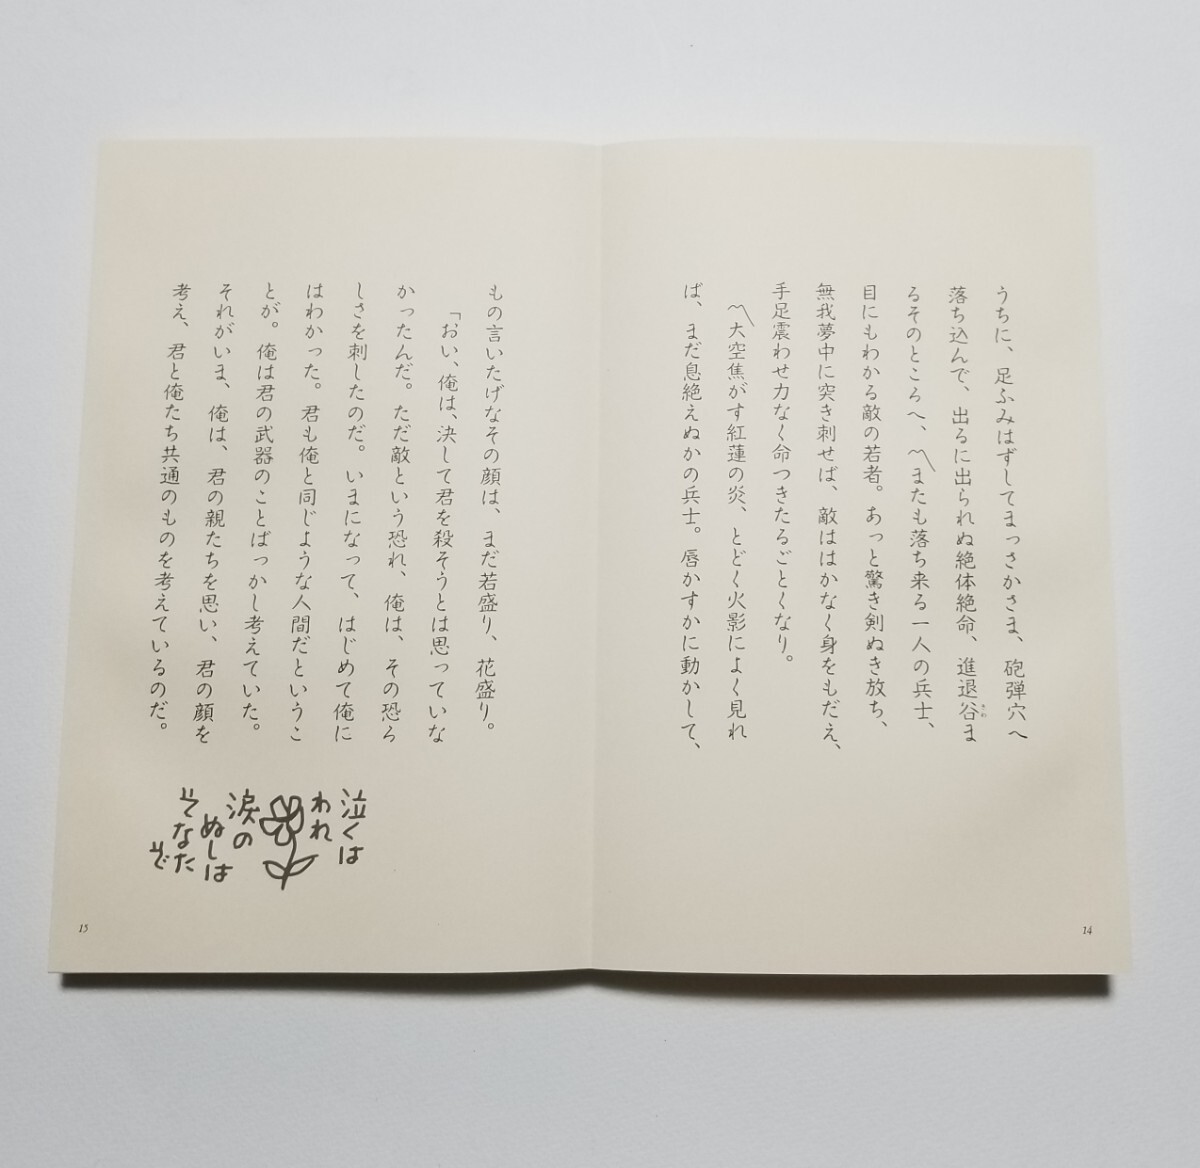 うちに、足ふみはずしてまっさかさま、砲弾穴へ
落ち込んで、出るに出られぬ絶体絶命、進退谷ま
きわ
るそのところへ、〽またも落ち来る一人の兵士、
目にもわかる敵の若者。あっと驚き剣ぬき放ち、
無我夢中に突き刺せば、敵ははかなく身をもだえ、
手足震わせ力なく命つきたるごとくなり。
〽大空焦がす紅蓮の炎、とどく火影によく見れ
ば、まだ息絶えぬかの兵士。唇かすかに動かして、
14
もの言いたげなその顔は、まだ若盛り、花盛り。
「おい、俺は、決して君を殺そうとは思っていな
かったんだ。ただ敵という恐れ、俺は、その恐ろ
しさを刺したのだ。いまになって、はじめて俺に
はわかった。君も俺と同じような人間だというこ
とが。俺は君の武器のことばっかし考えていた。
それがいま、俺は、君の親たちを思い、君の顔を
考え、君と俺たち共通のものを考えているのだ。
泣くは
われ
涙の
ぬしは
そなた
ぞ
15